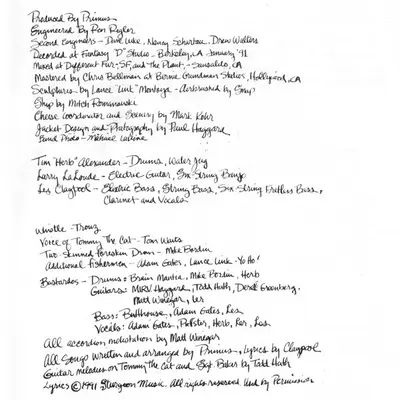 Produced By Primus
Engineered by Ron Rigler
Second Engineers - Dave Luke, Nancy Scharlau, Drew Walters
Recorded at Fantasy "D" Studio - Berkeley, CA January '91
Mixed at Different Fur - SF, and the Plant, - Sausalito, CA
Mastered by Chris Bellman at Bernie Grundman Studios, Hollywood, CA
Sculptures - by Lance "Link" Montoya - Airbrushed by Snap
Ship by Mitch Romanowski
Cheese Coordinator and Scenery by Mark Kohr
Jacket Design and Photography by Paul Haggard
Band Photo - Michael
Tim "Herb" Alexander - Drums, Water Jug
Larry LaLonde - Electric Guitar, Six-String Banjo
Les Claypool - Electric Bass, String Bass, Six-String Fretless Bass,
Clarinet and Vocals
Whistle - Trouz
Voice of Tommy The Cat - Tom Waits
Two Skinned Foreskin Drum - Mike Bordin
Additional fishermen - Adam Gates, Lance Link - Yo Ho!
Bastardos - Drums: Brain Mantia, Mike Bordin, Herb
Guitars: MIRV Haggard, Todd Huth, Derek Greenberg,
Matt Winegar, Ler
Bass: Butthouse, Adam Gates, Les
Vocals: Adam Gates, Herb, Ler, Les
All accordion molestation by Matt Winegar
All Songs written and arranged by Primus, Lyrics by Claypool
Guitar melodies on Tommy the Cat and Sgt. Baker by Todd Huth
Lyrics © 1991 Sturgeon Music. All rights reserved. Used by Permission